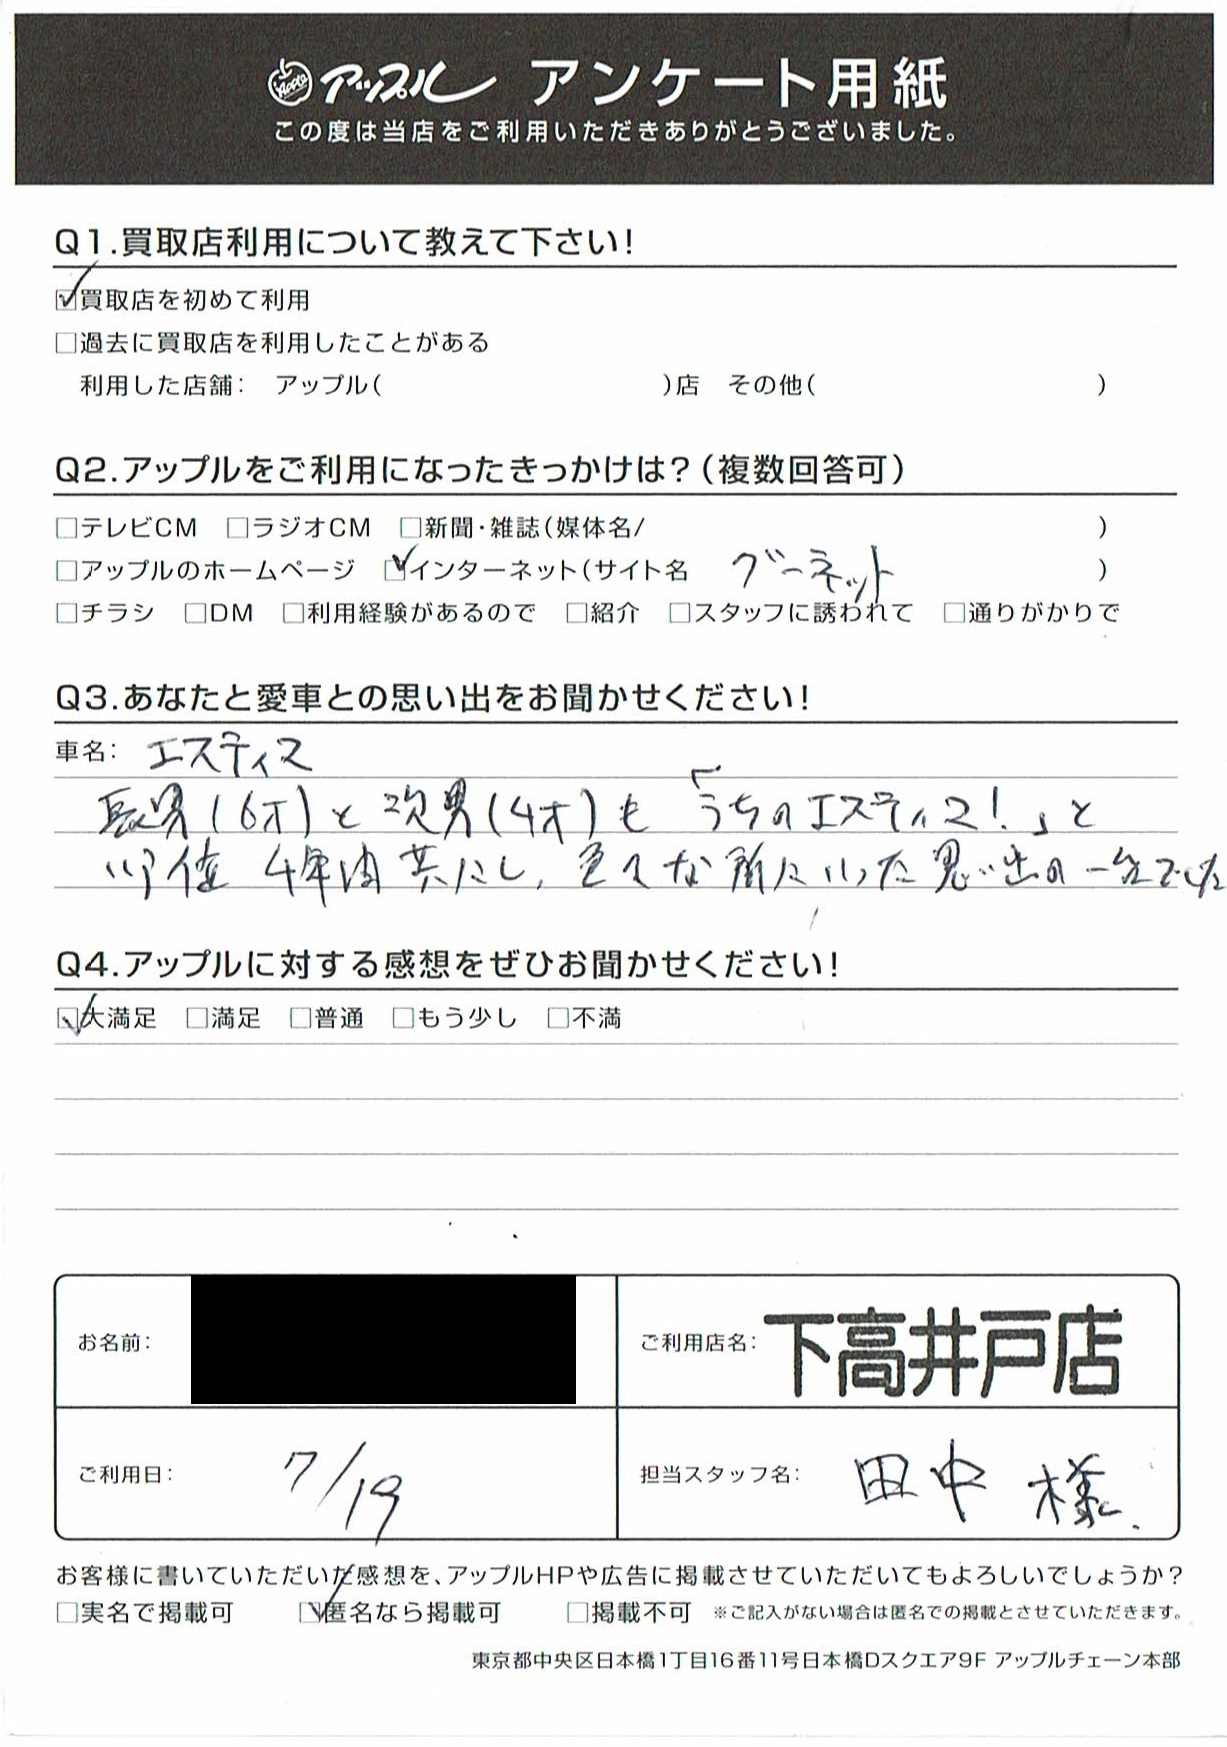 Apple アップル アンケート用紙
この度は当店をご利用いただきありがとうございました。
Q1.買取店利用について教えて下さい!
☑買取店を初めて利用
□過去に買取店を利用したことがある
利用した店舗: アップル( )店 その他( )
Q2.アップルをご利用になったきっかけは?(複数回答可)
□テレビCM □ラジオCM □新聞・雑誌(媒体名/ )
□アップルのホームページ ☑インターネット(サイト名 グーネット )
□チラシ □DM □利用経験があるので □紹介 □スタッフに誘われて □通りがかりで
Q3.あなたと愛車との思い出をお聞かせください!
車名: エスティマ
長男(6才)と次男(4才)も「うちのエスティマ!」と
4年間共にし,色々な所にいった思い出の一台でした
Q4.アップルに対する感想をぜひお聞かせください!
☑大満足 □満足 □普通 □もう少し □不満
お名前:
ご利用店名: 下高井戸店
ご利用日: 7/19
担当スタッフ名: 田中 様.
お客様に書いていただいた感想を、アップルHPや広告に掲載させていただいてもよろしいでしょうか?
□実名で掲載可 ☑匿名なら掲載可 □掲載不可 ※ご記入がない場合は匿名での掲載とさせていただきます。
東京都中央区日本橋1丁目16番11号日本橋Dスクエア9F アップルチェーン本部